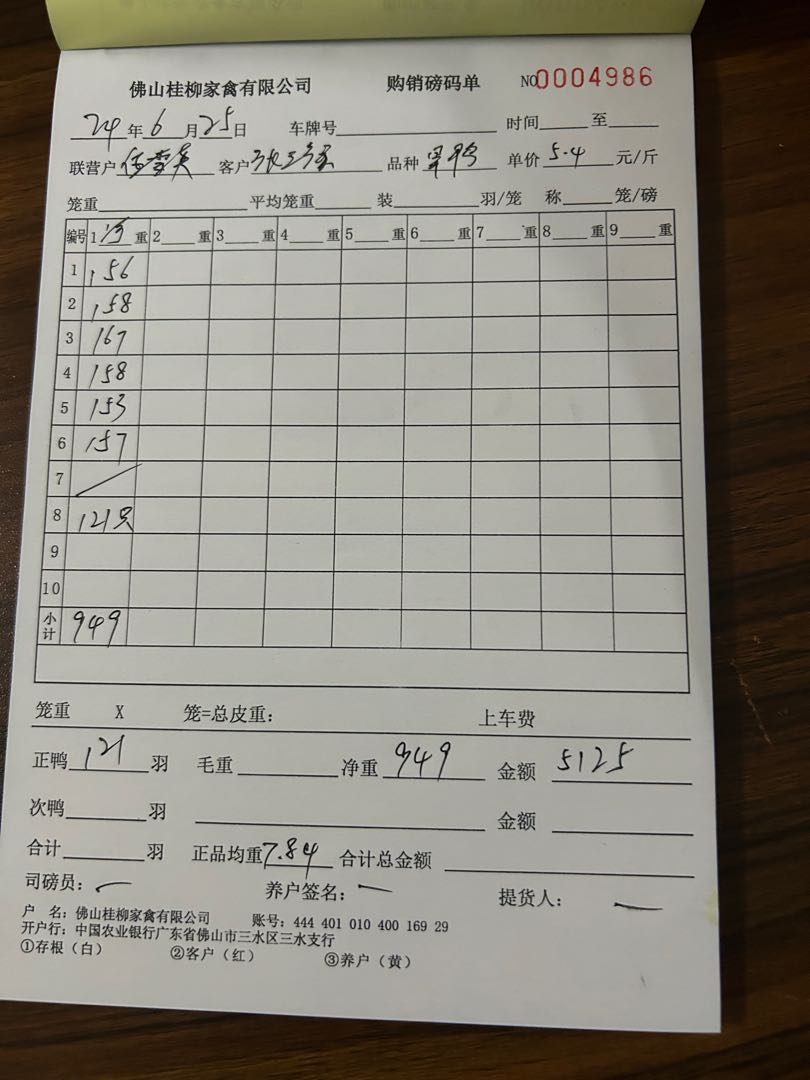 佛山桂柳家禽有限公司 购销磅码单 NO0004986
24年6月25日 车牌号 时间 至
联营户 客户 品种 单价5.4元/斤
笼重 平均笼重 装 羽/笼 称 笼/磅
编号 1 重 2 重 3 重 4 重 5 重 6 重 7 重 8 重 9 重
1 156
2 158
3 167
4 158
5 153
6 157
7 /
8 121只
9
10
小计 949
笼重 X 笼=总皮重: 上车费
正鸭121羽 毛重 净重949 金额5125
次鸭 羽 金额
合计 羽 正品均重7.84 合计总金额
司磅员: 养户签名: 提货人:
户 名: 佛山桂柳家禽有限公司 账号: 444 401 010 400 169 29
开户行: 中国农业银行广东省佛山市三水区三水支行
①存根(白) ②客户(红) ③养户(黄)